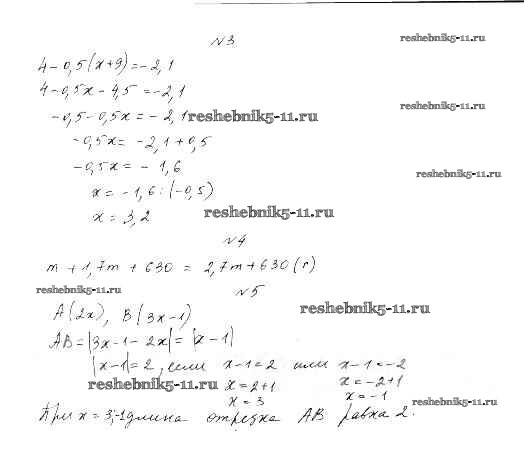 №3
reshebnik5-11.ru
4-0,5(x+9)=-2,1
4-0,5x-4,5=-2,1
reshebnik5-11.ru
-0,5-0,5x=-2,1
reshebnik5-11.ru
-0,5x=-2,1+0,5
-0,5x=-1,6
reshebnik5-11.ru
x=-1,6:(-0,5)
x=3,2
reshebnik5-11.ru
№4
m+1,7m+630=2,7m+630(г)
reshebnik5-11.ru
№5
A(2x), B(3x-1)
reshebnik5-11.ru
AB=|3x-1-2x|=|x-1|
|x-1|=2, если x-1=2 или x-1=-2
reshebnik5-11.ru
x=2+1 x=-2+1
x=3 x=-1
reshebnik5-11.ru
При x=3;-1 длина отрезка AB равна 2.